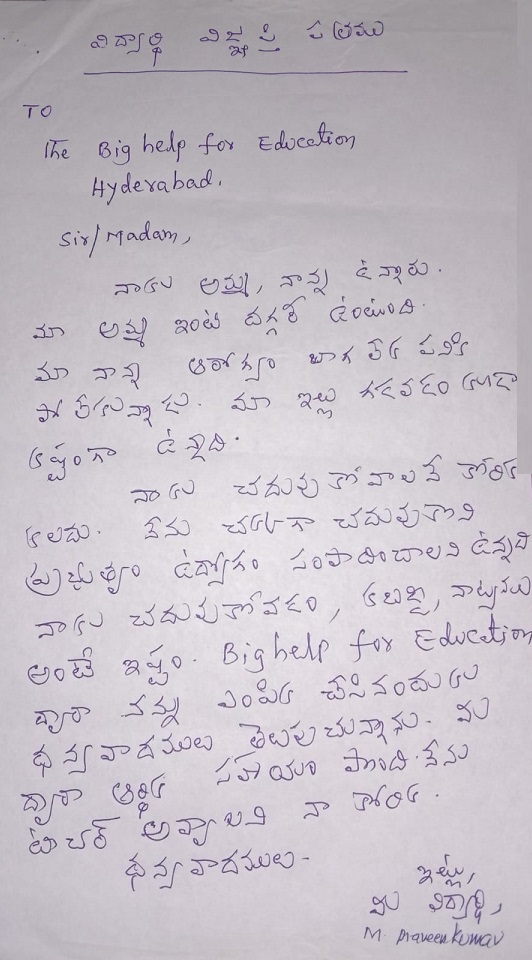 విద్యార్థి విజ్ఞప్తి పత్రము
TO
The Big help for Education
Hyderabad.
Sir/Madam,
నాకు అమ్మ, నాన్న ఉన్నారు.
మా అమ్మ ఇంటి దగ్గరే ఉంటుంది.
మా నాన్న ఆరోగ్యం బాగ లేక పనికి
పో లేకున్నాడు. మా ఇల్లు గడవడం కూడా
కష్టంగా ఉన్నది.
నాకు చదువు కోవాలనే కోరిక
కలదు. నేను చక్కగా చదువుకొని
ప్రభుత్వం ఉద్యోగం సంపాదించాలని ఉన్నది
నాకు చదువుకోవడం, కబడ్డి, నాట్యనలు
అంటే ఇష్టం. Big help for Education
ద్వారా నన్ను ఎంపిక చేసినందుకు
ధన్యవాదములు తెలుపుచున్నాను. మీ
ద్వారా ఆర్థిక సహాయం పొంది. నేను
టీచర్ అవ్వాలని నా కోరిక.
ధన్యవాదములు-
ఇట్లు,
మీ విద్యార్థి,
M. Praveen Kumar